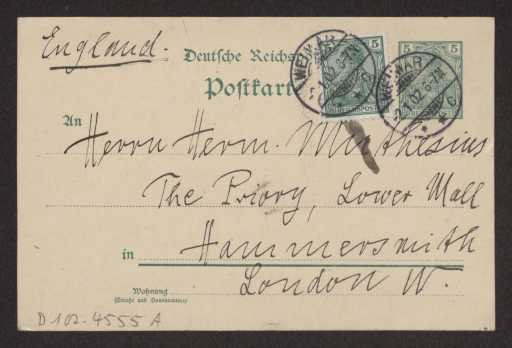 England.
Deutsche Reichspost
Postkarte
5
5
WEIMAR
WEIMAR
An
Herrn Herm. Muthesius
The Priory, Lower Mall
in Hammersmith
London W.
Wohnung
(Straße und Hausnummer)
D 102-4555 A